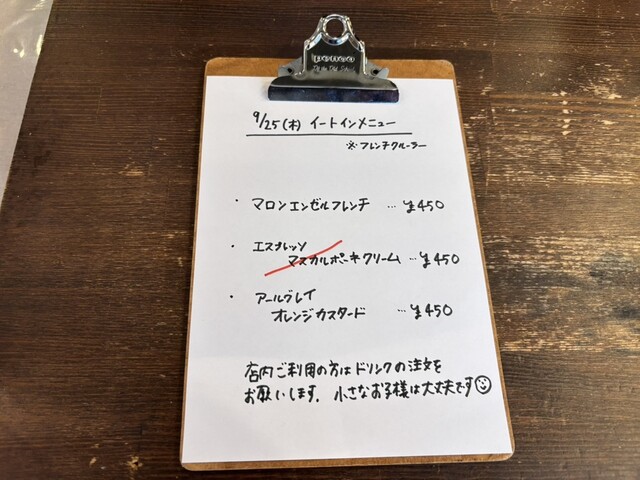 penco
9/25(木) イートインメニュー
※フレンチクルーラー
・ マロンエンゼルフレンチ … ¥450
・ エスプレッソ
マスカルポーネクリーム … ¥450
・ アールグレイ
オレンジカスタード … ¥450
店内ご利用の方はドリンクの注文を
お願いします。小さなお子様は大丈夫です